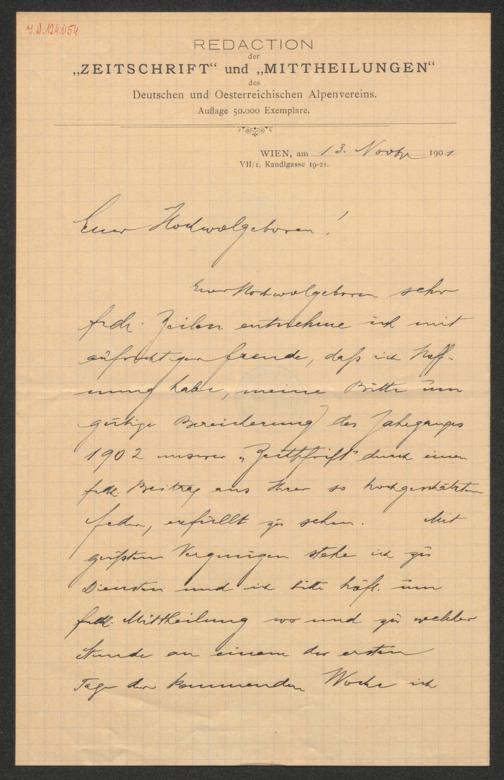 J.N. 124.054
REDACTION
der
„ZEITSCHRIFT“ und „MITTHEILUNGEN“
des
Deutschen und Oesterreichischen Alpenvereins.
Auflage 50.000 Exemplare.
WIEN, am 13. Novbr 1901
VII/1, Kandlgasse 19-21.
Euer Hochwolgeboren!
Euer Hochwolgeboren sehr
frdl. Zeilen entnehme ich mit
aufrichtiger Freude, daß ich Hoff-
nung habe, meine Bitte um
gütige Bereicherung des Jahrganges
1902 unserer „Zeitschrift“ durch einen
frdl. Beitrag aus Ihrer so hochgeschätzten
Feder, erfüllt zu sehen. Mit
größtem Vergnügen stehe ich zu
Diensten und ich bitte höfl. um
frdl. Mittheilung wo und zu welcher
Stunde an einem der ersten
Tage der kommenden Woche ich